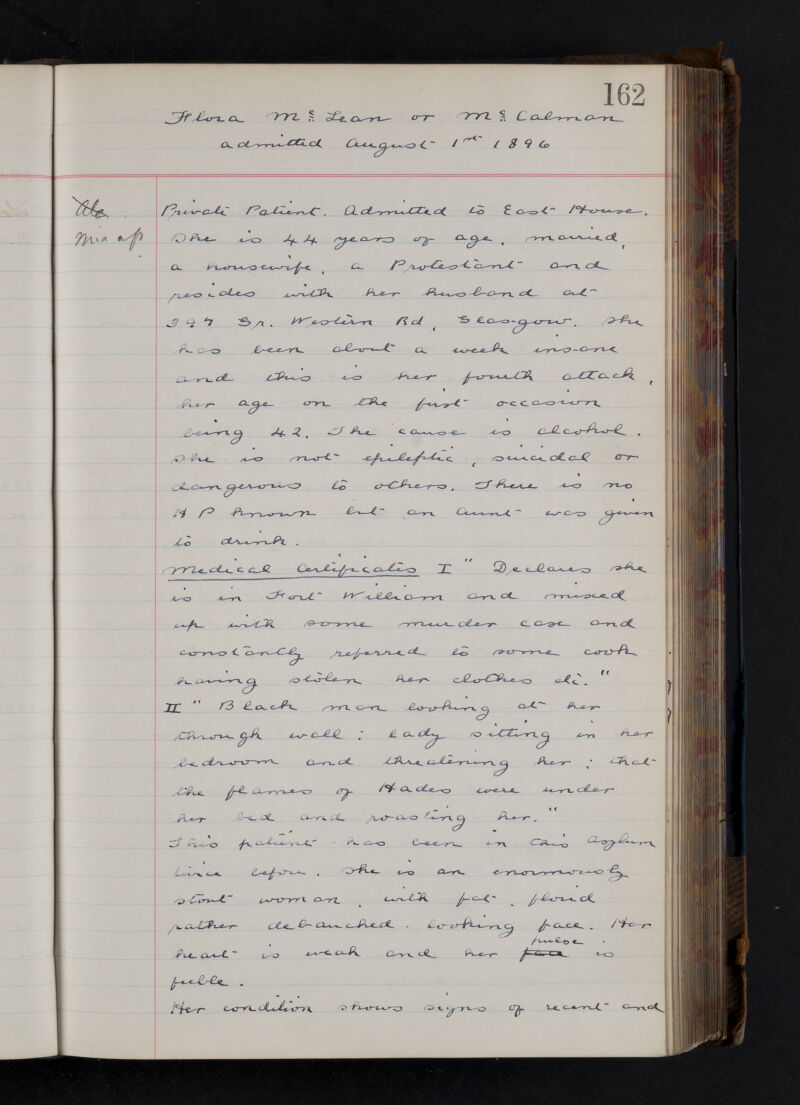 162
Flora Mc Lean or Mc Calman
admitted August 1st 1896
Private Patient. Admitted to East House.
She is 44 years of age, married,
a housewife, a Protestant and
resides with her husband at
397 Gr. Western Rd, Glasgow. She
has been about a week insane
and this is her fourth attack,
her age on the first occasion
being 42. The cause is alcohol.
She is not epileptic, suicidal or
dangerous to others. There is no
H P known but an Aunt was given
to drink.
Medical Certificates I " Declares she
is in Fort William and mixed
up with some murder case and
constantly referred to some cook
having stolen her clothes etc."
II " Black man looking at her
through wall: lady sitting in her
bedroom and threatening her: that
the flames of Hades were under
her bed and roasting her."
This patient has been in this Asylum
twice before. She is an enormously
stout woman, with fat, florid
rather debauched-looking face. Her
pulse
heart is weak and her face is
feeble.
Her condition shows signs of recent and